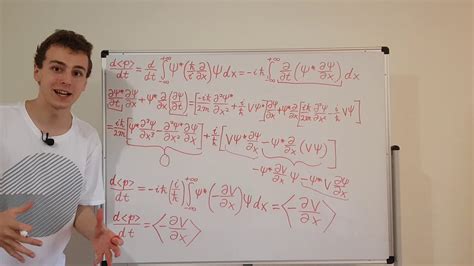 d<p>/dt = d/dt ∫_{-∞}^{+∞} Ψ*(ħ/i ∂/∂x)Ψdx = -iħ ∫_{-∞}^{+∞} ∂/∂t (Ψ* ∂Ψ/∂x) dx
∂Ψ*/∂t ∂Ψ/∂x + Ψ* ∂/∂x (∂Ψ/∂t) = [-iħ/2m ∂²Ψ*/∂x² + i/ħ VΨ*] ∂Ψ/∂x + Ψ* ∂/∂x [iħ/2m ∂²Ψ/∂x² - i/ħ VΨ]
= iħ/2m [Ψ* ∂³Ψ/∂x³ - ∂²Ψ*/∂x² ∂Ψ/∂x] + i/ħ [VΨ* ∂Ψ/∂x - Ψ* ∂/∂x (VΨ)]
0
-Ψ* ∂V/∂x Ψ - Ψ*V ∂Ψ/∂x
d<p>/dt = -iħ (i/ħ) ∫_{-∞}^{+∞} Ψ* (-∂V/∂x) Ψdx = <-∂V/∂x>
d<p>/dt = <-∂V/∂x>